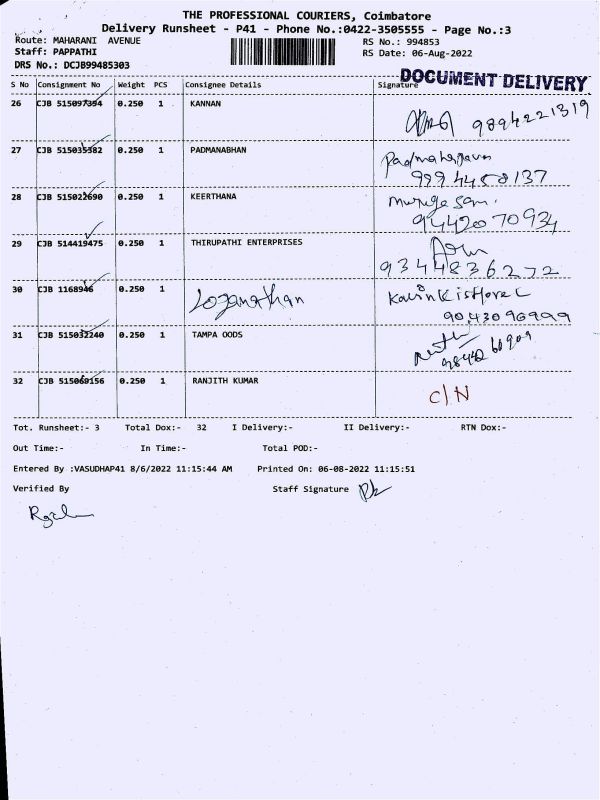 THE PROFESSIONAL COURIERS, Coimbatore
Delivery Runsheet - P41 - Phone No.:0422-3505555 - Page No.:3
Route: MAHARANI AVENUE RS No.: 994853
Staff: PAPPATHI RS Date: 06-Aug-2022
DRS No.: DCJB99485303
DOCUMENT DELIVERY
S No Consignment No Weight PCS Consignee Details Signature
26 CJB 515097394 0.250 1 KANNAN 9894221319
27 CJB 515035382 0.250 1 PADMANABHAN
28 CJB 515022690 0.250 1 KEERTHANA Murugesan.
9442070934
29 CJB 514419475 0.250 1 THIRUPATHI ENTERPRISES
9344836272
30 CJB 1168946 0.250 1 Loganathan
9043096999
31 CJB 515032240 0.250 1 TAMPA OODS
32 CJB 515069156 0.250 1 RANJITH KUMAR C/N
Tot. Runsheet:- 3 Total Dox:- 32 I Delivery:- II Delivery:- RTN Dox:-
Out Time:- In Time:- Total POD:-
Entered By :VASUDHAP41 8/6/2022 11:15:44 AM Printed On: 06-08-2022 11:15:51
Verified By Staff Signature